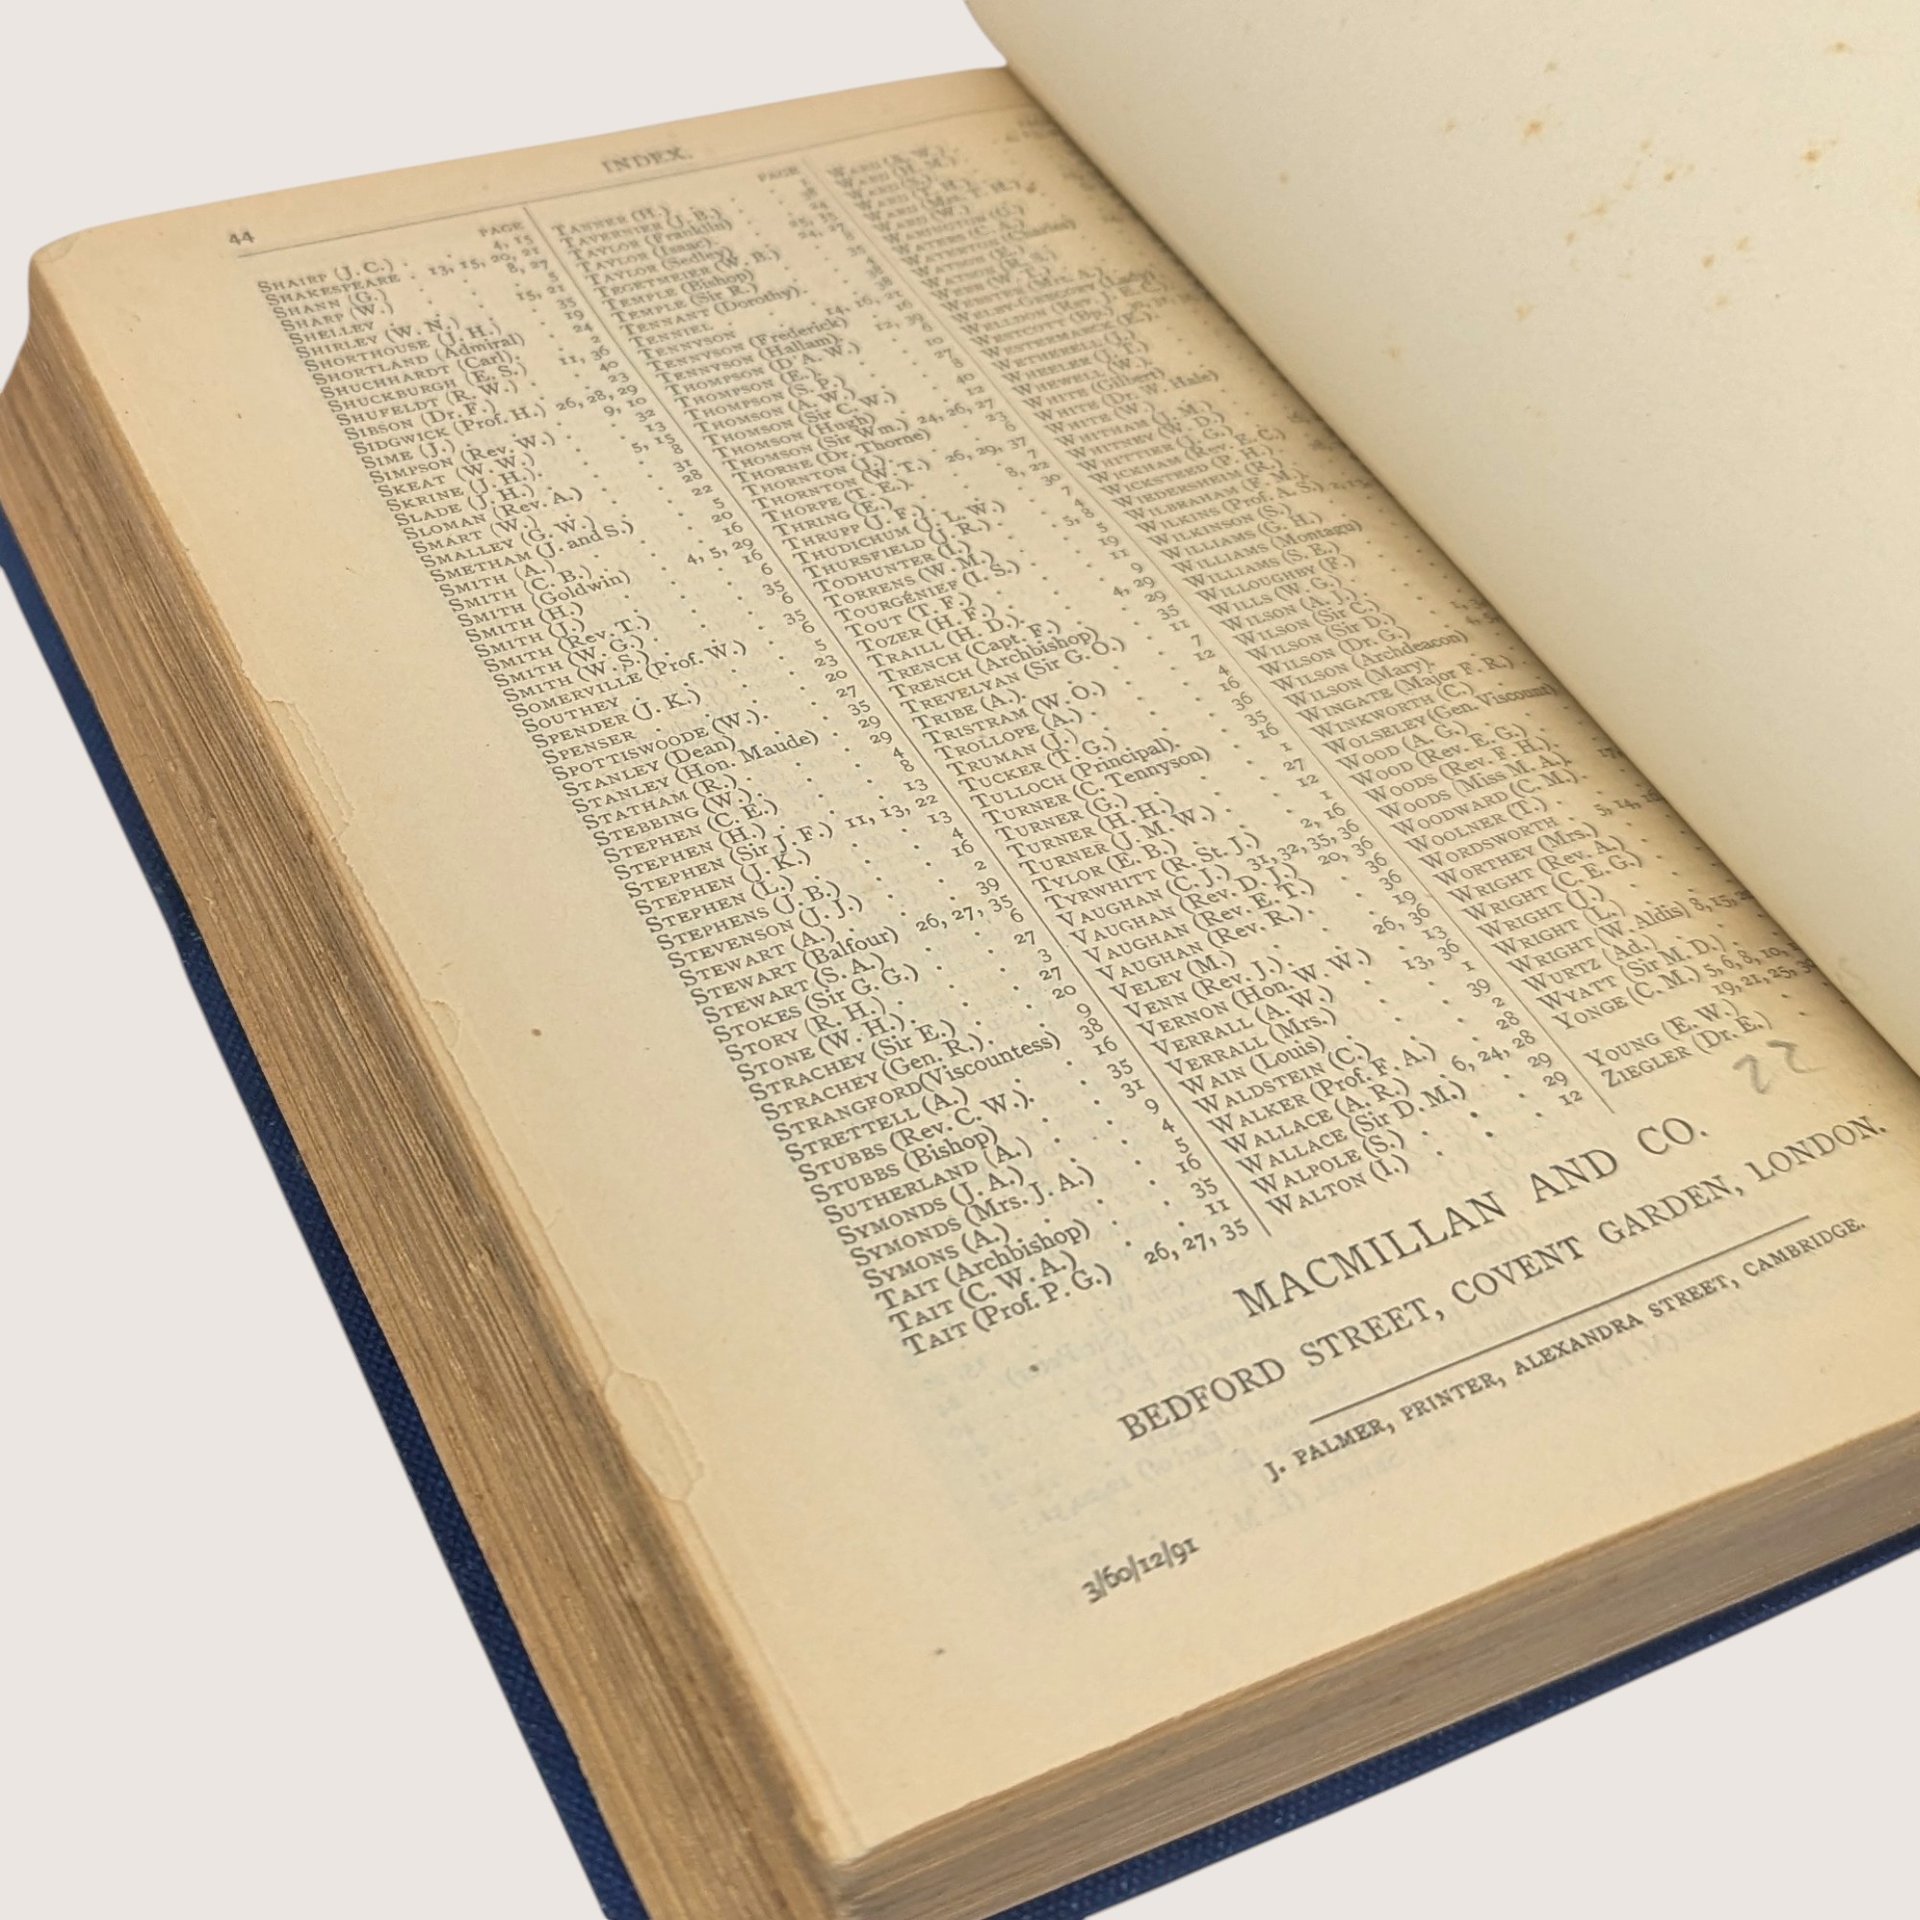 44
INDEX.
PAGE
SHAIRP (J. C.) . 4, 15
SHAKESPEARE . 13, 15, 20, 21
SHANN (G.) . . 8, 27
SHARP (W.) . . . 5
SHELLEY . . . 15, 21
SHIRLEY (W. N.) . . 35
SHORTHOUSE (J. H.) . 19
SHORTLAND (Admiral) . 24
SHUCHHARDT (Carl). . 2
SHUCKBURGH (E. S.) . 11, 36
SHUFELDT (R. W.) . . 40
SIBSON (Dr. F.) . . 23
SIDGWICK (Prof. H.) 26, 28, 29
SIME (J.) . . 9, 10
SIMPSON (Rev. W.) . . 32
SKEAT (W. W.) . . 13
SKRINE (J. H.). . 5, 15
SLADE (J. H.) . . 8
SLOMAN (Rev. A.) . . 31
SMART (W.) . . . 28
SMALLEY (G. W.) . . 22
SMETHAM (J. and S.) . 5
SMITH (A.) . . . 20
SMITH (C. B.) . . 16
SMITH (Goldwin) . 4, 5, 29
SMITH (H.) . . . 16
SMITH (J.) . . . 6
SMITH (Rev. T.) . . 35
SMITH (W. G.) . . 6
SMITH (W. S.) . . 35
SOMERVILLE (Prof. W.) . 6
SOUTHEY . . . 5
SPENDER (J. K.) . . 23
SPENSER . . . 20
SPOTTISWOODE (W.). . 27
STANLEY (Dean) . . 35
STANLEY (Hon. Maude) . 29
STATHAM (R.) . . 29
STEBBING (W.). . . 4
STEPHEN (C. E.) . . 8
STEPHEN (H.) . . 13
STEPHEN (Sir J. F.) 11, 13, 22
STEPHEN (J. K.) . . 13
STEPHEN (L.) . . 4
STEPHENS (J. B.) . . 16
STEVENSON (J. J.) . . 2
STEWART (A.) . . 39
STEWART (Balfour) 26, 27, 35
STEWART (S. A.) . . 6
STOKES (Sir G. G.) . 27
STORY (R. H.) . . 3
STONE (W. H.). . . 27
STRACHEY (Sir E.) . . 20
STRACHEY (Gen. R.). . 9
STRANGFORD(Viscountess) 38
STRETTELL (A.) . . 16
STUBBS (Rev. C. W.). . 35
STUBBS (Bishop) . . 31
SUTHERLAND (A.) . . 9
SYMONDS (J. A.) . . 4
SYMONDS (Mrs. J. A.) . 5
SYMONS (A.) . . . 16
TAIT (Archbishop) . . 35
TAIT (C. W. A.) . . 11
TAIT (Prof. P. G.) 26, 27, 35
PAGE
TANNER (H.) . . . 1
TAVERNIER (J. B.) . . 38
TAYLOR (Franklin) . . 24
TAYLOR (Isaac). . 25, 35
TAYLOR (Sedley) . 24, 27
TEGETMEIER (W. B.)
TEMPLE (Bishop)
TEMPLE (Sir R.)
TENNANT (Dorothy).
TENNIEL
TENNYSON . 14, 16, 21
TENNYSON (Frederick)
TENNYSON (Hallam). 12, 39
THOMPSON (D'A. W.)
THOMPSON (E.).
THOMPSON (S. P.) . . 27
THOMSON (A. W.) . . 8
THOMSON (Sir C. W.) . 40
THOMSON (Hugh) . . 12
THOMSON (Sir Wm.) 24, 26, 27
THORNE (Dr. Thorne) . 23
THORNTON (J.). . . 6
THORNTON (W. T.) 26, 29, 37
THORPE (T. E.). . . 7
THRING (E.) . . 8, 22
THRUPP (J. F.) . . 30
THUDICHUM (J. L. W.) . 7
THURSFIELD (J. R.) . 4
TODHUNTER (I.) . . 5, 8
TORRENS (W. M.) . . 5
TOURGÉNIEF (I. S.) . 19
TOUT (T. F.) . . 11
TOZER (H. F.) . . 9
TRAILL (H. D.). . 4, 29
TRENCH (Capt. F.) . . 29
TRENCH (Archbishop) . 35
TREVELYAN (Sir G. O.) . 11
TRIBE (A.). . . . 7
TRISTRAM (W. O.) . . 12
TROLLOPE (A.) . . 4
TRUMAN (J.) . . 16
TUCKER (T. G.) . . 36
TULLOCH (Principal). . 35
TURNER (C. Tennyson) . 16
TURNER (G.) . . . 1
TURNER (H. H.) . . 27
TURNER (J. M. W.) . . 12
TYLOR (E. B.) . . 1
TYRWHITT (R. St. J.) . 2, 16
VAUGHAN (C. J.) 31, 32, 35, 36
VAUGHAN (Rev. D. J.) 20, 36
VAUGHAN (Rev. E. T.) . 36
VAUGHAN (Rev. R.). . 36
VELEY (M.) . . . 19
VENN (Rev. J.). . 26, 36
VERNON (Hon. W. W.) . 13
VERRALL (A. W.) . 13, 36
VERRALL (Mrs.) . . 1
WAIN (Louis) . . 39
WALDSTEIN (C.) . . 2
WALKER (Prof. F. A.) . 28
WALLACE (A. R.) 6, 24, 28
WALLACE (Sir D. M.) . 29
WALPOLE (S.) . . 29
WALTON (I.) . . . 12
WARD (A. W.)
WARD (H. M.)
WARD (S.)
WARD (T. H.)
WARD (Mrs. T. H.)
WARD (W.)
WARINGTON (G.)
WATERS (C. A.)
WATERTON (Charles)
WATSON (E.)
WATSON (R. S.)
WEBB (W. T.)
WEBSTER (Mrs. A.)
WELBY-GREGORY (Lady)
WELLDON (Rev. J. E. C.)
WESTCOTT (Bp.)
WESTERMARCK (E.).
WETHERELL (J.)
WHEELER (J. T.)
WHEWELL (W.).
WHITE (Gilbert)
WHITE (Dr. W. Hale)
WHITE (W.)
WHITHAM (J. M.)
WHITNEY (W. D.)
WHITTIER (J. G.)
WICKHAM (Rev. E. C.)
WICKSTEED (P. H.)
WIEDERSHEIM (R.)
WILBRAHAM (F. M.).
WILKINS (Prof. A. S.)
WILKINSON (S.)
WILLIAMS (G. H.)
WILLIAMS (Montagu)
WILLIAMS (S. E.)
WILLOUGHBY (F.)
WILLS (W. G.)
WILSON (A. J.)
WILSON (Sir C.)
WILSON (Sir D.)
WILSON (Dr. G.)
WILSON (Archdeacon)
WILSON (Mary).
WINGATE (Major F. R.)
WINKWORTH (C.)
WOLSELEY (Gen. Viscount)
WOOD (A. G.)
WOOD (Rev. E. G.)
WOODS (Rev. F. H.).
WOODS (Miss M. A.).
WOODWARD (C. M.).
WOOLNER (T.)
WORDSWORTH . 5, 14,
WORTHEY (Mrs.)
WRIGHT (Rev. A.)
WRIGHT (C. E. G.)
WRIGHT (J.)
WRIGHT (L.)
WRIGHT (W. Aldis) 8, 15,
WURTZ (Ad.)
WYATT (Sir M. D.)
YONGE (C. M.) 5, 6, 8, 10,
19, 21, 25,
YOUNG (E. W.)
ZIEGLER (Dr. E.)
22
MACMILLAN AND CO.
BEDFORD STREET, COVENT GARDEN, LONDON.
J. PALMER, PRINTER, ALEXANDRA STREET, CAMBRIDGE.
3/60/12/91